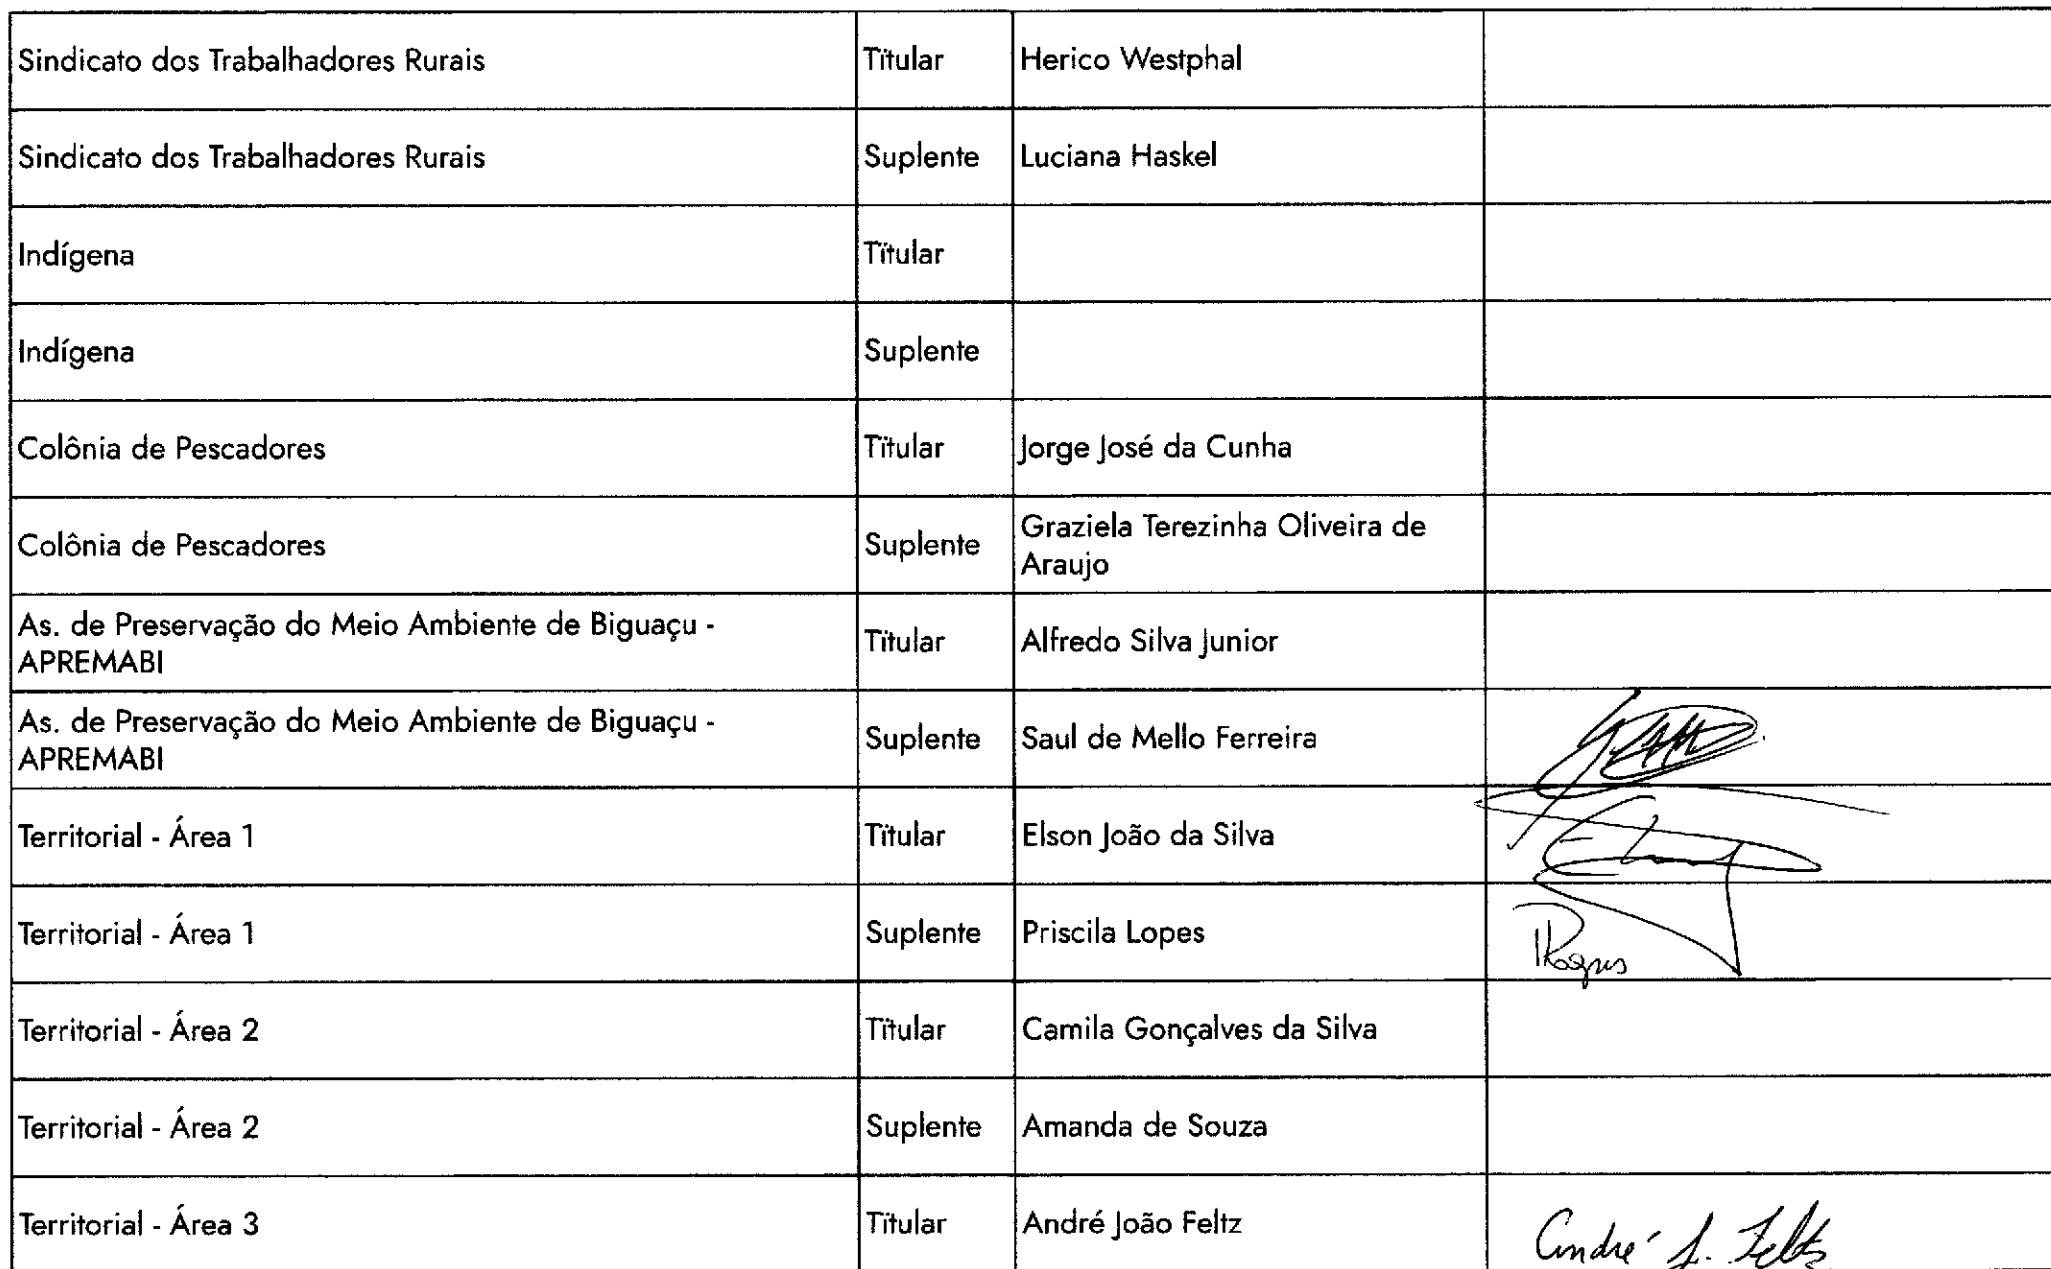 Sindicato dos Trabalhadores Rurais Titular Herico Westphal
Sindicato dos Trabalhadores Rurais Suplente Luciana Haskel
Indígena Titular
Indígena Suplente
Colônia de Pescadores Titular Jorge José da Cunha
Colônia de Pescadores Suplente Graziela Terezinha Oliveira de
Araujo
As. de Preservação do Meio Ambiente de Biguaçu -
APREMABI Titular Alfredo Silva Junior
As. de Preservação do Meio Ambiente de Biguaçu -
APREMABI Suplente Saul de Mello Ferreira
Territorial - Área 1 Titular Elson João da Silva
Territorial - Área 1 Suplente Priscila Lopes
Territorial - Área 2 Titular Camila Gonçalves da Silva
Territorial - Área 2 Suplente Amanda de Souza
Territorial - Área 3 Titular André João Feltz André J. Feltz